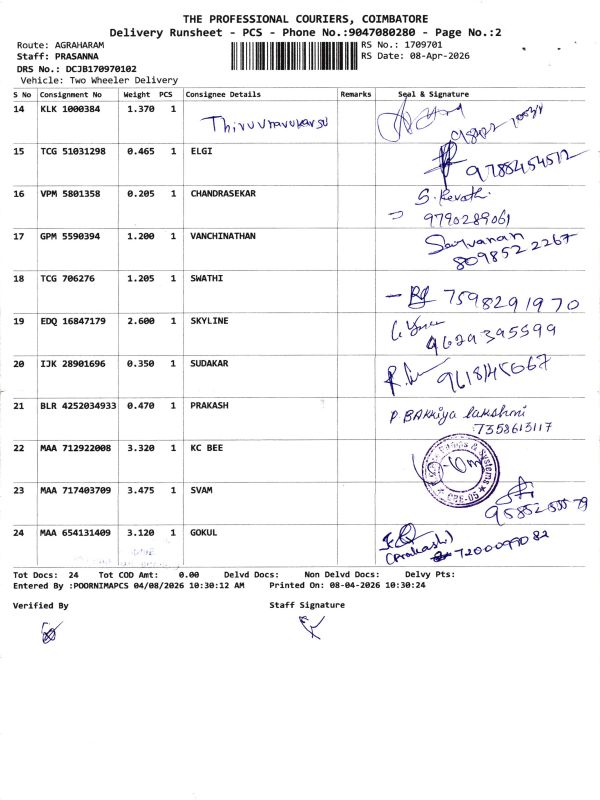 THE PROFESSIONAL COURIERS, COIMBATORE
Delivery Runsheet - PCS - Phone No.:9047080280 - Page No.:2
Route: AGRAHARAM RS No.: 1709701
Staff: PRASANNA RS Date: 08-Apr-2026
DRS No.: DCJB170970102
Vehicle: Two Wheeler Delivery
S No Consignment No Weight PCS Consignee Details Remarks Seal & Signature
14 KLK 1000384 1.370 1
15 TCG 51031298 0.465 1 ELGI
9788454512
16 VPM 5801358 0.205 1 CHANDRASEKAR S. Revathi
9790289061
17 GPM 5590394 1.200 1 VANCHINATHAN Saravanan
809852 2267
18 TCG 706276 1.205 1 SWATHI
7598291970
19 EDQ 16847179 2.600 1 SKYLINE
9629395599
20 IJK 28901696 0.350 1 SUDAKAR
21 BLR 4252034933 0.470 1 PRAKASH P BAKKiya lakshmi
7358613117
22 MAA 712922008 3.320 1 KC BEE
Pumps & Systems
CBE-05
23 MAA 717403709 3.475 1 SVAM
24 MAA 654131409 3.120 1 GOKUL
(Prakash) 7200099082
Tot Docs: 24 Tot COD Amt: 0.00 Delvd Docs: Non Delvd Docs: Delvy Pts:
Entered By :POORNIMAPCS 04/08/2026 10:30:12 AM Printed On: 08-04-2026 10:30:24
Verified By Staff Signature